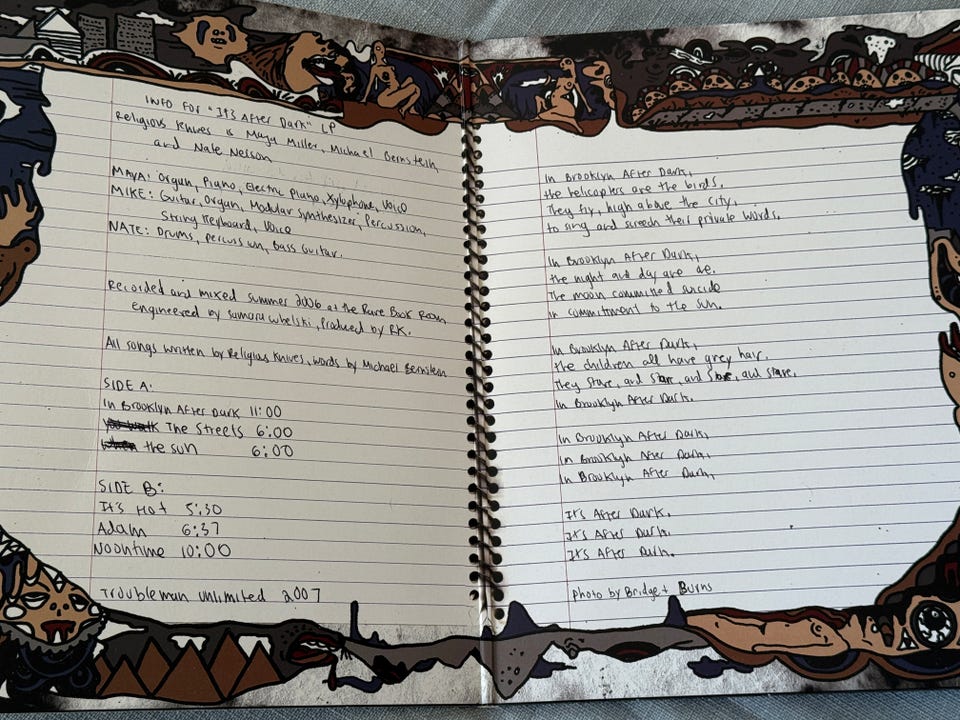 INFO FOR "It's After Dark" LP
Religious Knives is Maya Miller, Michael Bernstein,
and Nate Nelson
MAYA: Organ, Piano, Electric Piano, Xylophone, Voice
MIKE: Guitar, Organ, Modular Synthesizer, Percussion,
String Keyboard, Voice
NATE: Drums, percussion, Bass Guitar.
Recorded and mixed summer 2006 at the Rare Book Room
engineered by samara lubelski, Produced by RK.
All songs written by Religious Knives, words by Michael Bernstein
SIDE A:
In Brooklyn After Dark 11:00
You walk The Streets 6:00
when the sun 6:00
SIDE B:
It's Hot 5:30
Adam 6:37
Noontime 10:00
Troubleman Unlimited 2007
In Brooklyn After Dark,
the helicopters are the birds.
They fly, high above the city,
to sing and screech their private words.
In Brooklyn After Dark,
the night and day are one.
The moon committed suicide
in commitment to the sun.
In Brooklyn After Dark,
the children all have grey hair.
They stare, and stare, and stare, and stare.
In Brooklyn After Dark.
In Brooklyn After Dark,
In Brooklyn After Dark,
In Brooklyn After Dark,
It's After Dark.
It's After Dark.
It's After Dark.
photo by Bridget Burns